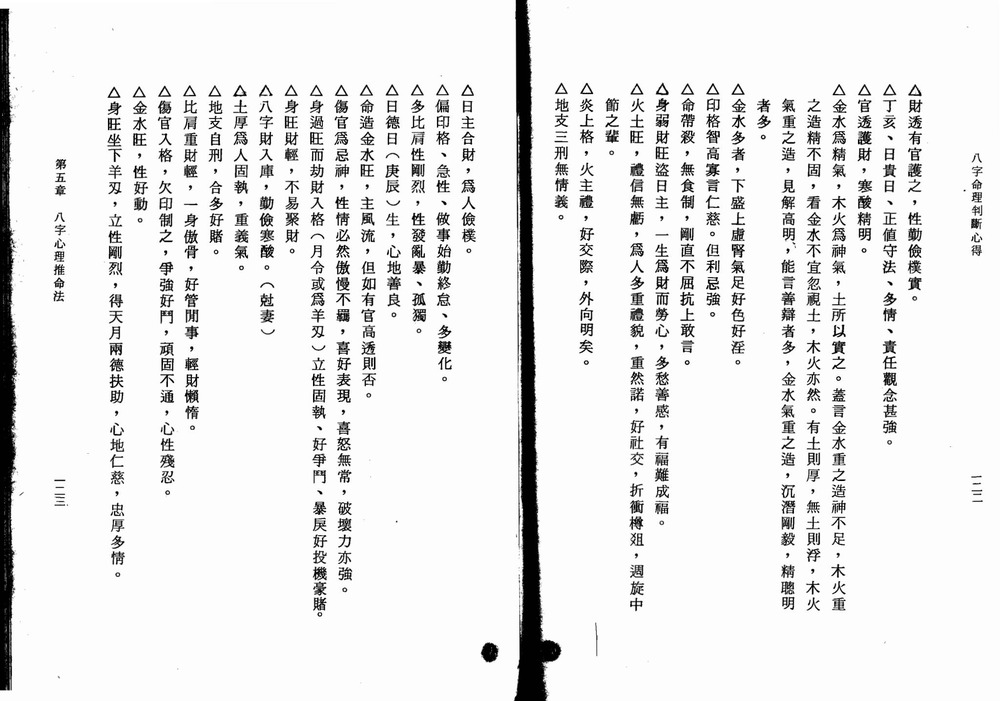 八字命理判斷心得
一二二
△財透有官護之，性勤儉樸實。
△丁亥、日貴日、正値守法、多情、責任觀念甚強。
△官透護財，寒酸精明。
△金水爲精氣，木火爲神氣，土所以實之。蓋言金水重之造神不足，木火重
之造精不固，看金水不宜忽視土，木火亦然。有土則厚，無土則浮，木火
氣重之造，見解高明，能言善辯者多，金水氣重之造，沉潛剛毅，精聰明
者多。
△金水多者，下盛上虛腎氣足好色好淫。
△印格智高寡言仁慈。但利忌強。
△命帶殺，無食制，剛直不屈抗上敢言。
△身弱財旺盜日主，一生爲財而勞心，多愁善感，有福難成福。
△火土旺，禮信無虧，爲人多重禮貌，重然諾，好社交，折衝樽俎，週旋中
節之輩。
△炎上格，火主禮，好交際，外向明矣。
△地支三刑無情義。
△日主合財，爲人儉樸。
△偏印格、急性、做事始勤終怠、多變化。
△多比肩性剛烈，性發亂暴、孤獨。
△日德日（庚辰）生，心地善良。
△命造金水旺，主風流，但如有官高透則否。
△傷官爲忌神，性情必然傲慢不羈，喜好表現，喜怒無常，破壞力亦強。
△身過旺而劫財入格（月令或爲羊刃）立性固執、好爭鬥、暴戾好投機豪賭。
△身旺財輕，不易聚財。
△八字財入庫，勤儉寒酸。（尅妻）
△土厚爲人固執，重義氣。
△地支自刑，合多好賭。
△比肩重財輕，一身傲骨，好管閒事，輕財懶惰。
△傷官入格，欠印制之，爭強好鬥，頑固不通，心性殘忍。
△金水旺，性好動。
△身旺坐下羊刃，立性剛烈，得天月兩德扶助，心地仁慈，忠厚多情。
第五章　八字心理推命法
一二三